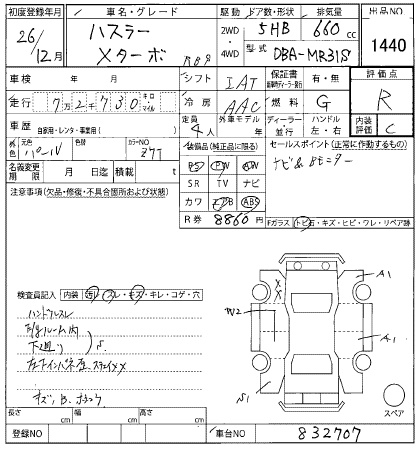 初度登録年月 車名・グレード 駆動 ドア数・形状 排気量 出品NO
26/12月 ハスラー Xターボ 2WD 4WD 5HB 660cc 1440
型式 DBA-MR31S
車検 年 月 シフト IAT 保証書 新車時ディーラー発行 有・無 評価点
走行 7万2千730 キロ マイル 冷房 AAC 燃料 G R
車歴 自家用・レンタ・事業用( ) 定員 4人 外車モデル 年 ディーラー・並行 ハンドル 左・右 内装評価 C
外色 元色 パール 色替 カラーNO Z7T
装備品(純正品に限る) セールスポイント(正常に作動するもの)
名義変更期限 月 日迄 積載 t
PS PW AW
ナビ&Bモニター
SR TV ナビ
注意事項(欠品・修復・不具合箇所および状態)
カワ エアB ABS
R券 8860円
Fガラス トビ石・キズ・ヒビ・ワレ・リペア跡
A1
検査員記入 内装 汚レ・スレ・キズ・キレ・コゲ・穴
W2
ハンドルスレ
A1
下廻り S
S1
スペア
長さ cm 幅 cm 高さ cm
登録NO 車台NO 832707